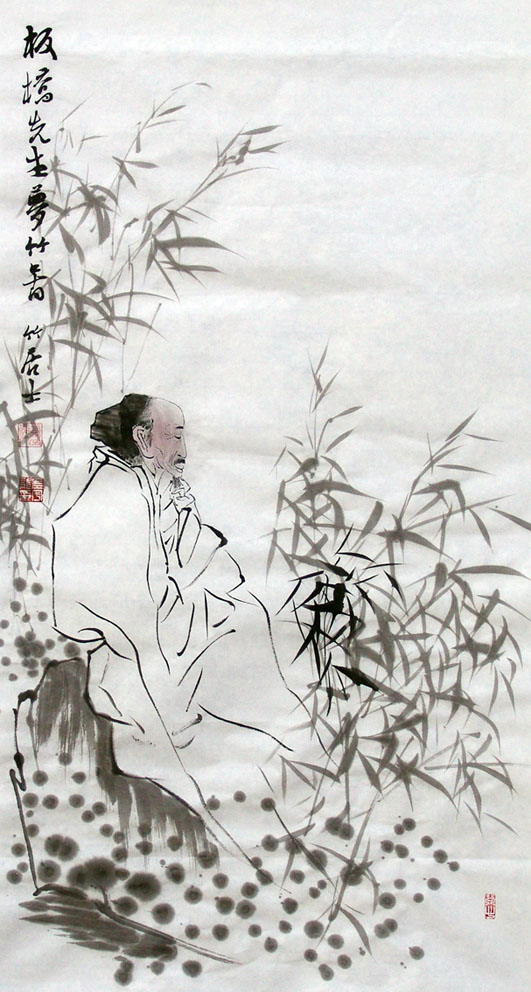 板橋先生夢竹 竹居士